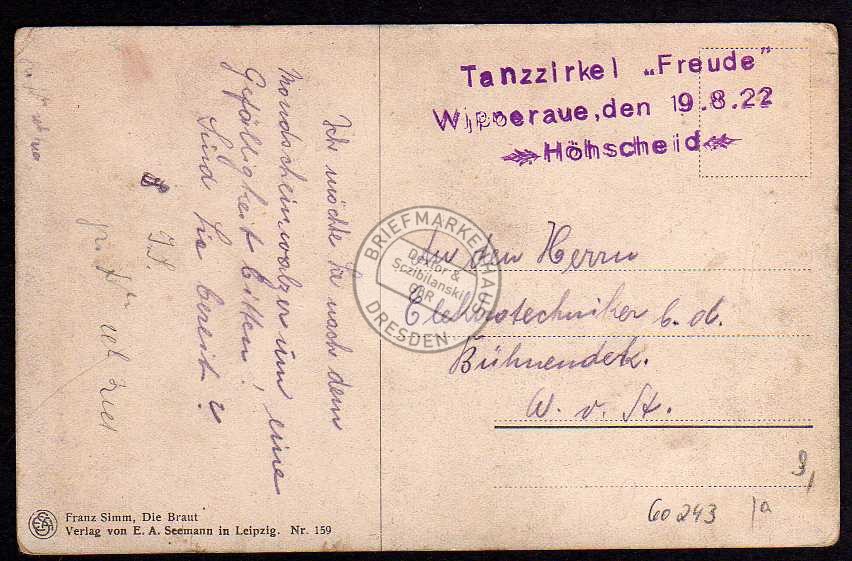 Tanzzirkel „Freude"
Wipperaue, den 19.8.22
Höhscheid
Ich möchte Sie nach dem
Mondscheinwalzer um eine
Gefälligkeit bitten!
Sind Sie bereit?
J. S.
An den Herrn
Elektrotechniker b. d.
Bühnendek.
W. v. St.
BRIEFMARKENHAUS
Dexfor &
Sczibilanski
GbR
DRESDEN
60243
Franz Simm, Die Braut
Verlag von E. A. Seemann in Leipzig. Nr. 159